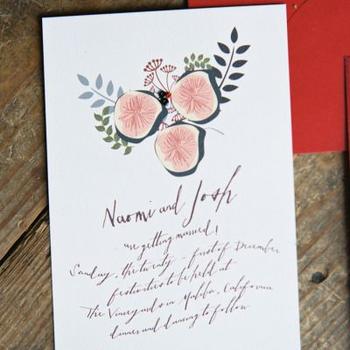 Naomi and Josh
are getting married!
Sunday, the twenty-first of December
festivities to be held at
The Vineyard in Malibu, California
dinner and dancing to follow